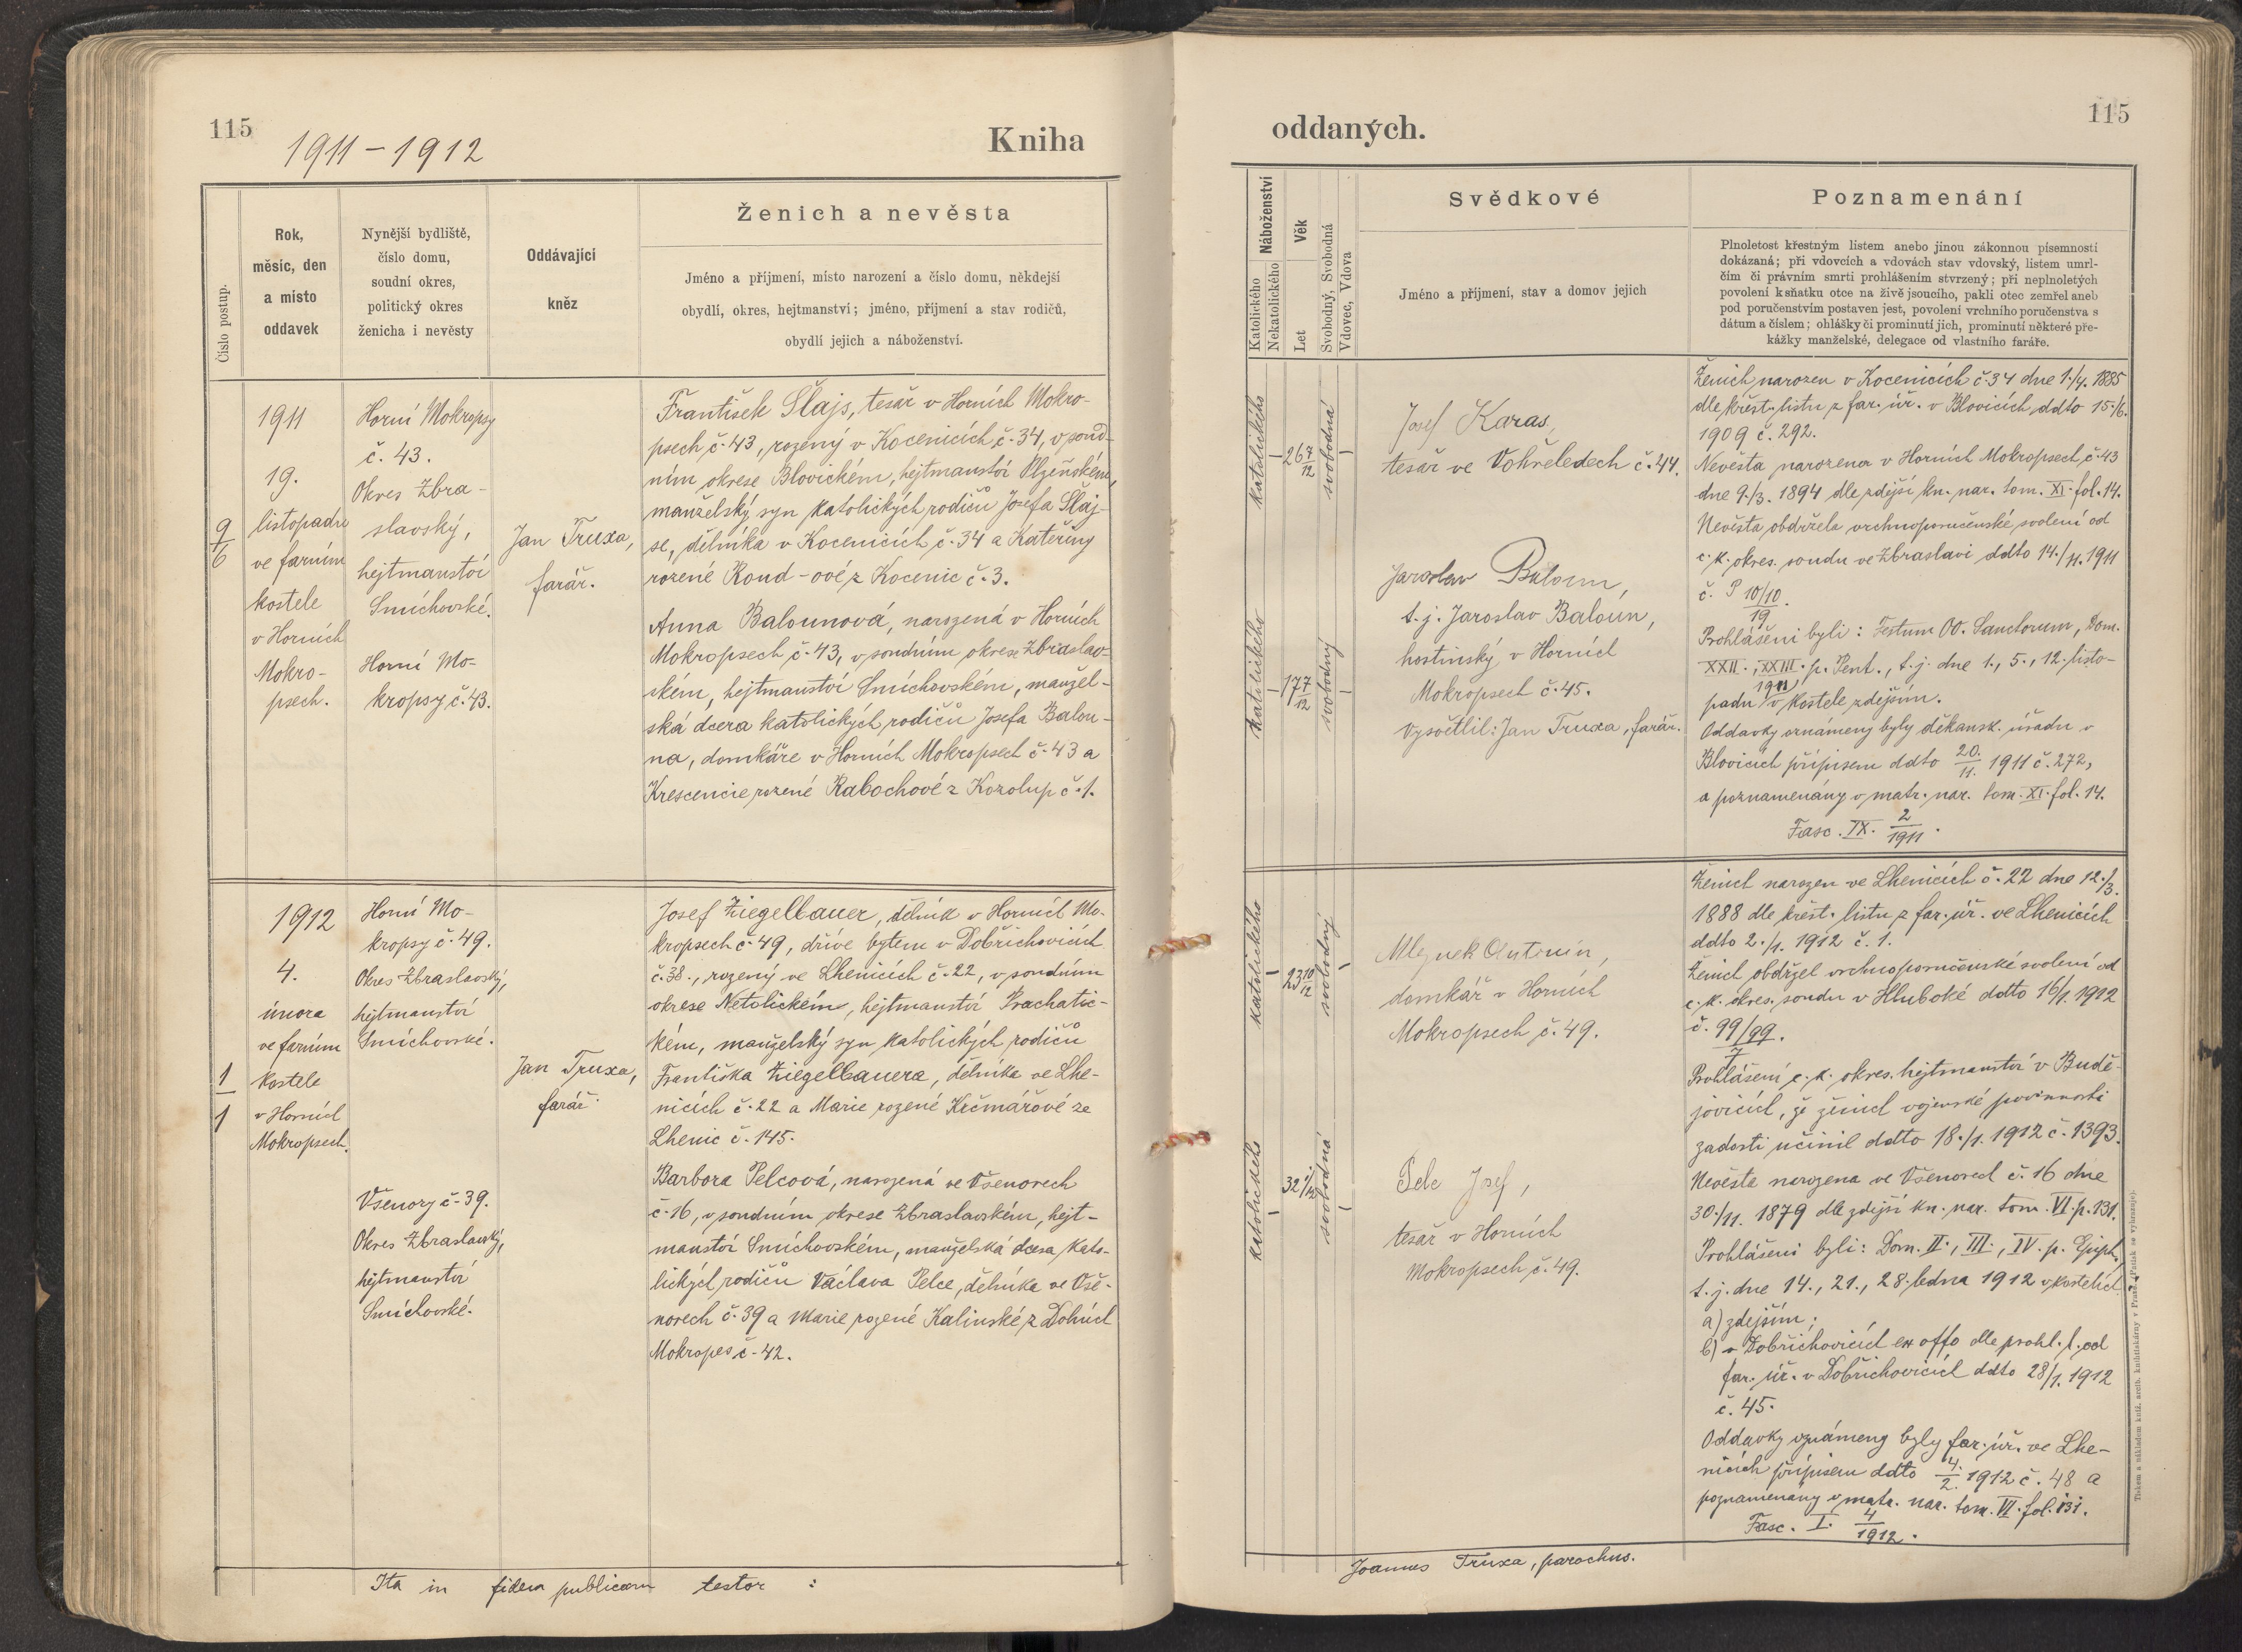 115
1911 - 1912
Kniha
Číslo postup.
Rok,
měsíc, den
a místo
oddavek
Nynější bydliště,
číslo domu,
soudní okres,
politický okres
ženicha i nevěsty
Oddávající
kněz
Ženich a nevěsta
Jméno a příjmení, místo narození a číslo domu, někdejší
obydlí, okres, hejtmanství; jméno, příjmení a stav rodičů,
obydlí jejich a náboženství.
9
6
1911
19.
listopadu
ve farním
kostele
v Horních
Mokro-
psech.
Horní Mokropsy
č. 43.
Okres Zbra-
slavský,
hejtmanství
Smíchovské.
Horní Mo-
kropsy č. 43.
Jan Truxa,
farář.
František Šlajs, tesař v Horních Mokro-
psech č. 43, rozený v Kocenicích č. 34, v soud-
ním okrese Blovickém, hejtmanství Plzeňském,
manželský syn katolických rodičů Josefa Šlaj-
se, dělníka v Kocenicích č. 34 a Kateřiny
rozené Koud-ové z Kocenic č. 3.
Anna Balounová, narozená v Horních
Mokropsech č. 43, v soudním okrese Zbraslav-
ském, hejtmanství Smíchovském, manžel-
ská dcera katolických rodičů Josefa Balou-
na, domkáře v Horních Mokropsech č. 43 a
Krescencie rozené Rabochové z Kozolup č. 1.
1
1
1912
4.
února
ve farním
kostele
v Horních
Mokropsech.
Horní Mo-
kropsy č. 49.
Okres Zbraslavský,
hejtmanství
Smíchovské.
Všenory č. 39.
Okres Zbraslavský,
hejtmanství
Smíchovské.
Jan Truxa,
farář.
Josef Ziegelbauer, dělník v Horních Mo-
kropsech č. 49, dříve bytem v Dobřichovicích
č. 38., rozený ve Lhenicích č. 22, v soudním
okrese Netolickém, hejtmanství Prachatic-
kém, manželský syn katolických rodičů
Františka Ziegelbauera, dělníka ve Lhe-
nicích č. 22 a Marie rozené Krčmářové ze
Lhenic č. 145.
Barbora Pelcová, narozená ve Všenorech
č. 16, v soudním okrese Zbraslavském, hejt-
manství Smíchovském, manželská dcera kato-
lických rodičů Václava Pelce, dělníka ve Vše-
norech č. 39 a Marie rozené Kalinské z Dolních
Mokropes č. 42.
Ita in fidem publicam testor :
115
oddaných.
Náboženství
Katolického
Nekatolického
Věk
Let
Svobodný, Svobodná
Vdovec, Vdova
Svědkové
Jméno a příjmení, stav a domov jejich
Poznamenání
Plnoletost křestným listem anebo jinou zákonnou písemností
dokázaná; při vdovcích a vdovách stav vdovský, listem umrl-
čím či právním smrti prohlášením stvrzený; při neplnoletých
povolení k sňatku otce na živě jsoucího, pakli otec zemřel aneb
pod poručenstvím postaven jest, povolení vrchního poručenstva s
dátum a číslem; ohlášky či prominutí jich, prominutí některé pře-
kážky manželské, delegace od vlastního faráře.
katolického
26 7/12
svobodná
katolického
17 7/12
svobodný
Josef Karas,
tesař ve Vohřeledech č. 44.
Jaroslav Baloun,
t. j. Jaroslav Baloun,
hostinský v Horních
Mokropsech č. 45.
Vysvětlil: Jan Truxa, farář.
Ženich narozen v Kocenicích č. 34 dne 1./4. 1885
dle křest. listu z far. úř. v Blovicích ddto 15./6.
1909 č. 292.
Nevěsta narozena v Horních Mokropsech č. 43
dne 9./3. 1894 dle zdejší kn. nar. tom. XI. fol. 14.
Nevěsta obdržela vrchnoporučenské svolení od
c. k. okres. soudu ve Zbraslavi ddto 14./11. 1911
č. P 10/10.
19
Prohlášeni byli: Festum OO. Sanctorum, Dom.
XXII., XXIII. p. Pent., t. j. dne 1., 5., 12. listo-
padu 1911 v kostele zdejším.
Oddavky oznámeny byly děkansk. úřadu v
Blovicích přípisem ddto 20./11. 1911 č. 272,
a poznamenány v matr. nar. tom. XI. fol. 14.
Fasc. IX. 2/1911.
katolického
23 10/12
svobodný
katolického
svobodná
Mlejnek Antonín,
domkář v Horních
Mokropsech č. 49.
Pelc Josef,
tesař v Horních
Mokropsech č. 49.
Ženich narozen ve Lhenicích č. 22 dne 12./3.
1888 dle křest. listu z far. úř. ve Lhenicích
ddto 2./1. 1912 č. 1.
Ženich obdržel vrchnoporučenské svolení od
c. k. okres. soudu v Hluboké ddto 16/1. 1912
č. 99/99.
7
Prohlášení c. k. okres. hejtmanství v Budě-
jovicích, že ženich vojenské povinnosti
zadosti učinil ddto 18./1. 1912 č. 1393.
Nevěsta narozena ve Všenorech č. 16 dne
30./11. 1879 dle zdejší kn. nar. tom. VI. p. 131.
Prohlášeni byli: Dom. II., III., IV. p. Epiph.,
t. j. dne 14., 21., 28. ledna 1912 v kostelích
a) zdejším;
b) v Dobřichovicích ex offo dle prohl. l. od
far. úř. v Dobřichovicích ddto 28/1. 1912
č. 45.
Oddavky oznámeny byly far. úř. ve Lhe-
nicích přípisem ddto 4./2. 1912 č. 48 a
poznamenány v matr. nar. tom. VI. fol. 131.
Fasc. I. 4/1912.
Joannes Truxa, parochus.